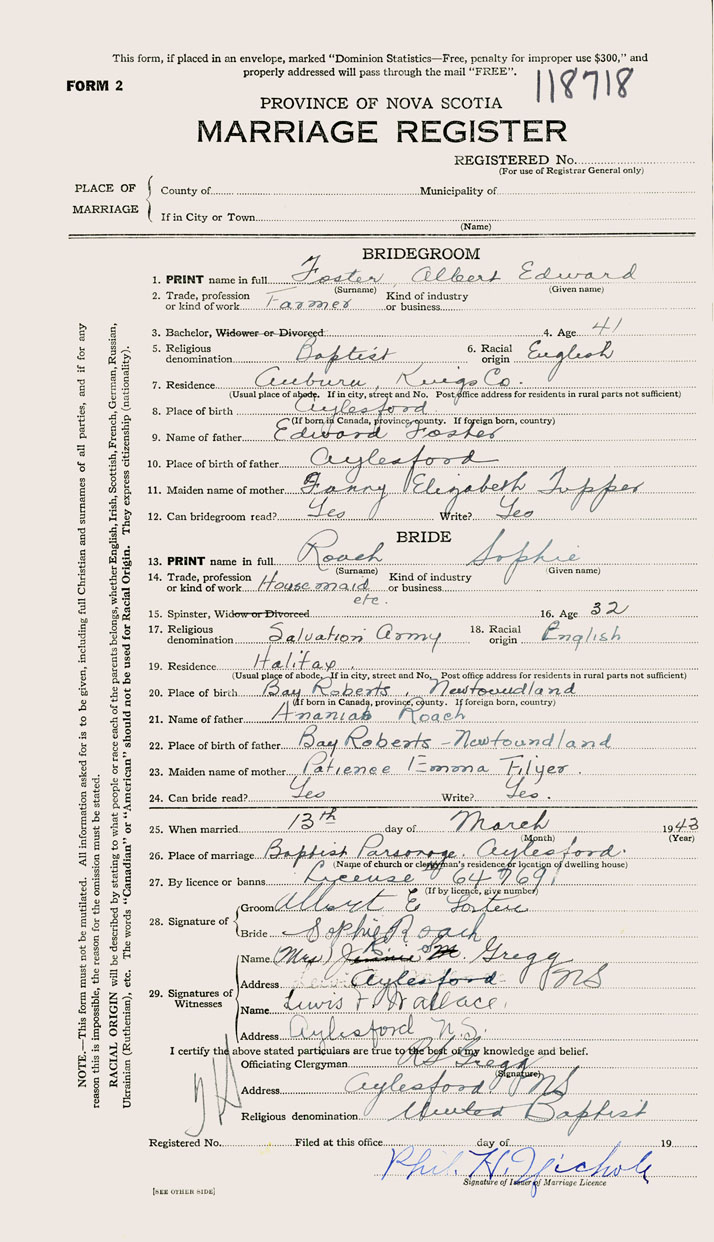 This form, if placed in an envelope, marked "Dominion Statistics—Free, penalty for improper use $300," and
properly addressed will pass through the mail "FREE".
118718
FORM 2
PROVINCE OF NOVA SCOTIA
MARRIAGE REGISTER
REGISTERED No.
(For use of Registrar General only)
PLACE OF MARRIAGE
County of Municipality of
If in City or Town
(Name)
BRIDEGROOM
1. PRINT name in full Foster, Albert Edward
(Surname) (Given name)
2. Trade, profession or kind of work Farmer Kind of industry or business
3. Bachelor, Widower or Divorced 4. Age 41
5. Religious denomination Baptist 6. Racial origin English
7. Residence Auburn, Kings Co.
(Usual place of abode. If in city, street and No. Post office address for residents in rural parts not sufficient)
8. Place of birth Aylesford
(If born in Canada, province, county. If foreign born, country)
9. Name of father Edward Foster
10. Place of birth of father Aylesford
11. Maiden name of mother Fanny Elizabeth Tupper
12. Can bridegroom read? Yes Write? Yes
BRIDE
13. PRINT name in full Roach Sophie
(Surname) (Given name)
14. Trade, profession or kind of work Housemaid etc. Kind of industry or business
15. Spinster, Widow or Divorced 16. Age 32
17. Religious denomination Salvation Army 18. Racial origin English
19. Residence Halifax.
(Usual place of abode. If in city, street and No. Post office address for residents in rural parts not sufficient)
20. Place of birth Bay Roberts, Newfoundland
(If born in Canada, province, county. If foreign born, country)
21. Name of father Ananias Roach
22. Place of birth of father Bay Roberts - Newfoundland
23. Maiden name of mother Patience Emma Filyer.
24. Can bride read? Yes Write? Yes.
25. When married 13th day of March 1943
(Month) (Year)
26. Place of marriage Baptist Parsonage, Aylesford.
(Name of church or clergyman's residence or location of dwelling house)
27. By licence or banns License 64769
(If by licence, give number)
28. Signature of
Groom Albert E Foster
Bride Sophie Roach
29. Signatures of Witnesses
Name (Mrs) Gregg
Address Aylesford NS
Name Lewis F Wallace.
Address Aylesford N.S.
I certify the above stated particulars are true to the best of my knowledge and belief.
Officiating Clergyman Gregg
(Signature)
Address Aylesford NS
Religious denomination United Baptist
Registered No. Filed at this office day of 19
Phil. H. Nichols
Signature of Issuer of Marriage Licence
[SEE OTHER SIDE]
NOTE.—This form must not be mutilated. All information asked for is to be given, including full Christian and surnames of all parties, and if for any
reason this is impossible, the reason for the omission must be stated.
RACIAL ORIGIN will be described by stating to what people or race each of the parents belongs, whether English, Irish, Scottish, French, German, Russian,
Ukrainian (Ruthenian), etc. The words "Canadian" or "American" should not be used for Racial Origin. They express citizenship (nationality).